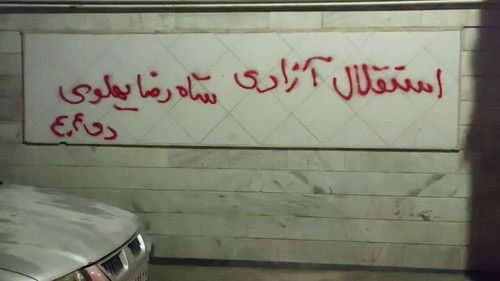 استقلال آزادی شاه رضا پهلوی
دی ۴۰۴